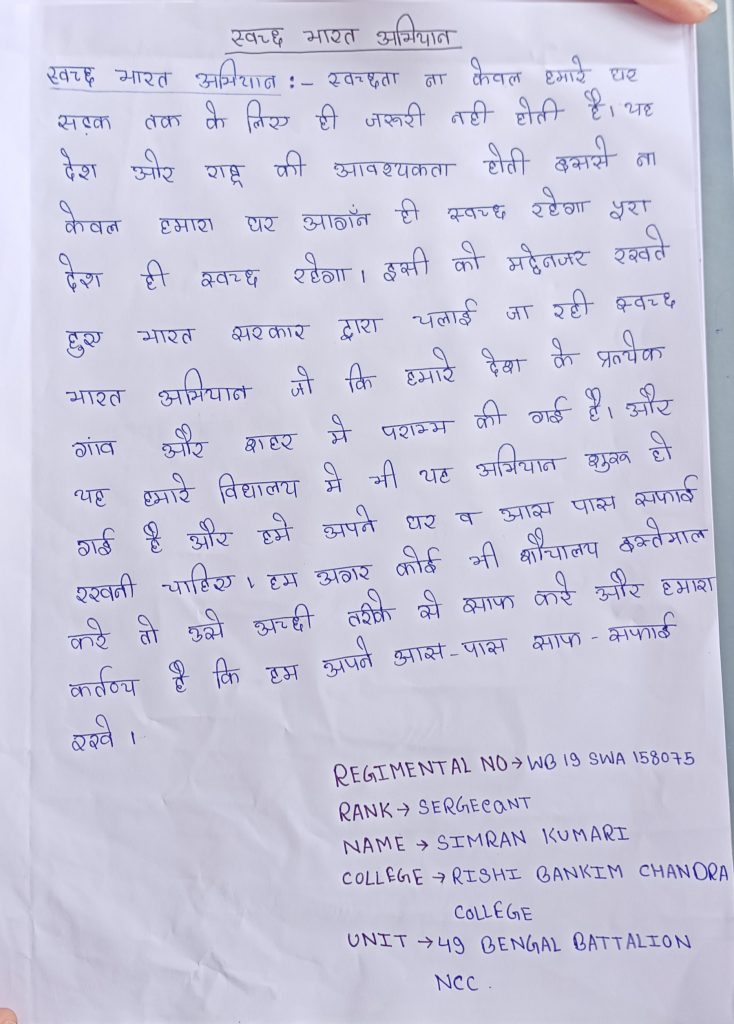 स्वच्छ भारत अभियान
स्वच्छ भारत अभियान :- स्वच्छता ना केवल हमारे घर
सड़क तक के लिए ही जरूरी नही होती है। यह
देश और राष्ट्र की आवश्यकता होती इससे ना
केवल हमारा घर आगॅन ही स्वच्छ रहेगा पूरा
देश ही स्वच्छ रहेगा। इसी को मद्देनजर रखते
हुए भारत सरकार द्वारा चलाई जा रही स्वच्छ
भारत अभियान जो कि हमारे देश के प्रत्येक
गांव और शहर मे पराम्भ की गई है। और
यह हमारे विद्यालय मे भी यह अभियान शुरू हो
गई है और हमे अपने घर व आस पास सफाई
रखनी चाहिए। हम अगर कोई भी शौचालय इस्तेमाल
करे तो उसे अच्छी तरीके से साफ करे और हमारा
कर्तव्य है कि हम अपने आस-पास साफ-सफाई
रखे।
REGIMENTAL NO → WB 19 SWA 158075
RANK → SERGEANT
NAME → SIMRAN KUMARI
COLLEGE → RISHI BANKIM CHANDRA
COLLEGE
UNIT → 49 BENGAL BATTALION
NCC.